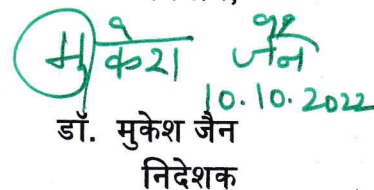 मुकेश जैन
10.10.2022
डॉ. मुकेश जैन
निदेशक